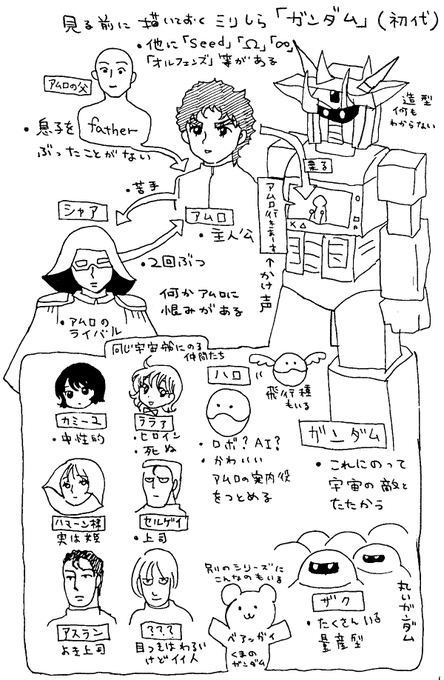 見る前に描いておくミリしら「ガンダム」(初代)
・他に「Seed」「Ω」「∞」
「オルフェンズ」等がある
アムロの父
father
・息子を
ぶったことがない
造型
何も
わからない
乗る
・苦手
シャア
アムロ
・主人公
アムロ行きまーす
↑かけ声
・2回ぶつ
何かアムロに
恨みがある
・アムロの
ライバル
同じ宇宙船にのる
仲間たち
カミーユ
・中性的
ララァ
・ヒロイン
・死ぬ
ハロ
飛行種
もいる
・ロボ?AI?
・かわいい
アムロの案内役
をつとめる
ガンダム
・これにのって
宇宙の敵と
たたかう
ハマーン様
実は姫
セルゲイ
・上司
アスラン
よき上司
???
目つきはわるい
けどイイ人
別のシリーズに
こんなのもいる
ベアッガイ
くまの
ガンダム
ザク
・たくさんいる
量産型
丸いガンダム